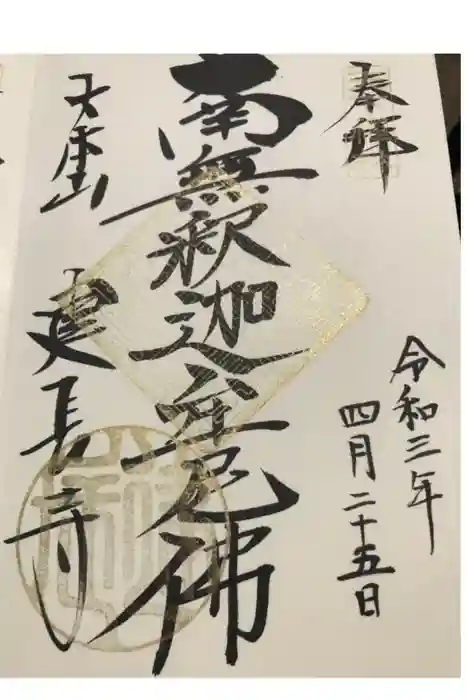 奉拝
令和三年
四月二十五日
南無釈迦牟尼佛
建長寺